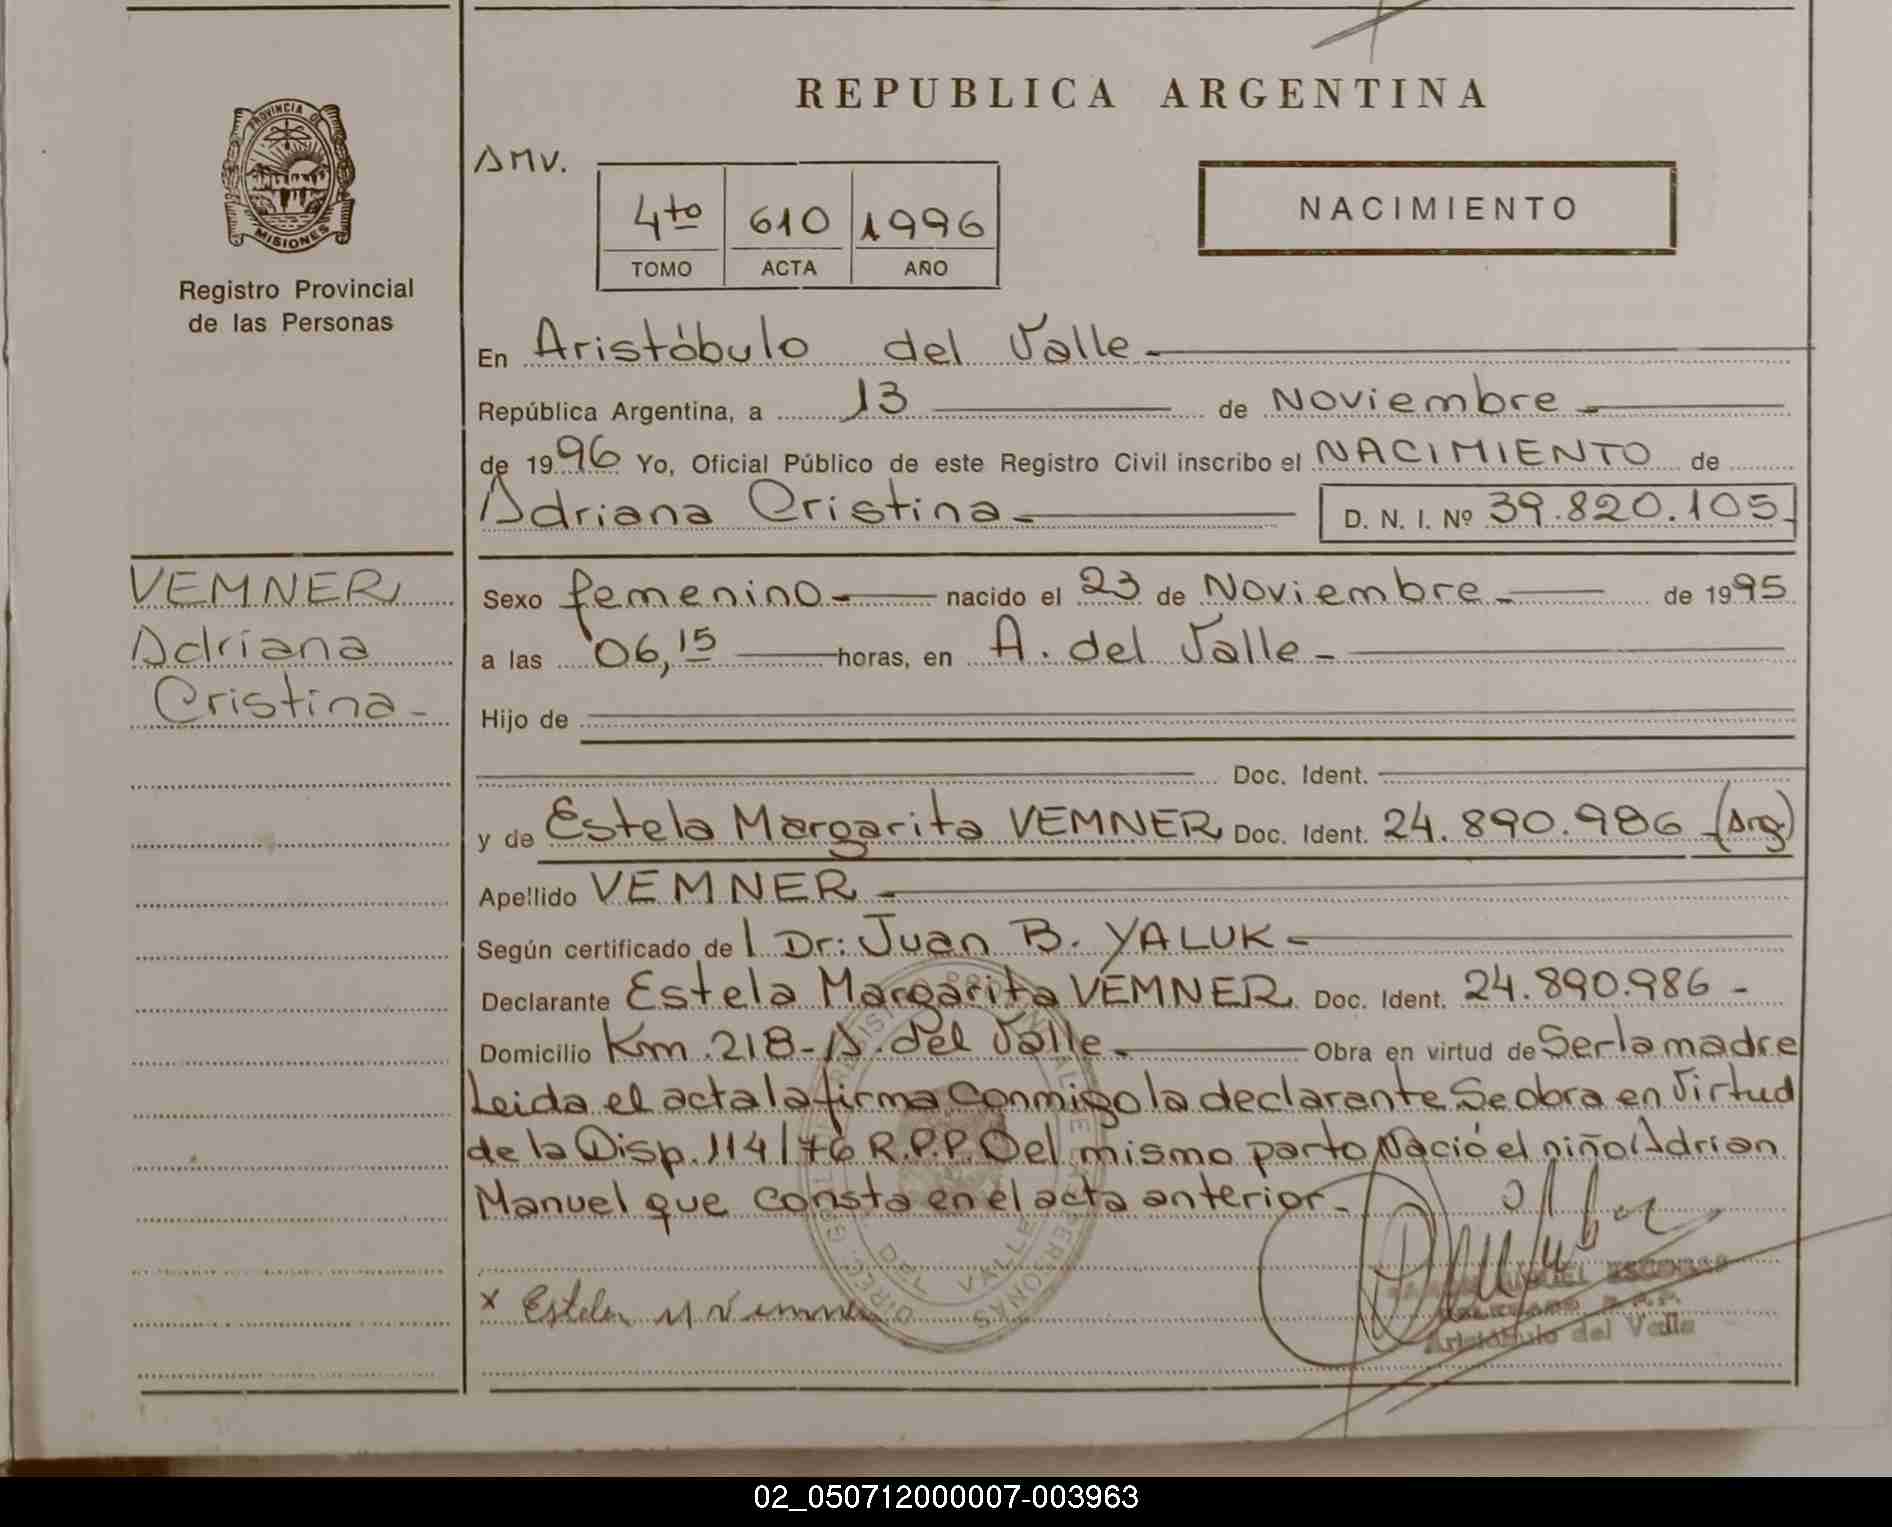 REPUBLICA ARGENTINA
PROVINCIA DE
MISIONES
Registro Provincial
de las Personas
AMV.
4to 610 1996
TOMO ACTA AÑO
NACIMIENTO
En Aristóbulo del Valle -
República Argentina, a 13 de Noviembre -
de 1996 Yo, Oficial Público de este Registro Civil inscribo el NACIMIENTO de
Adriana Cristina - D. N. I. Nº 39.820.105
VEMNER
Adriana
Cristina -
Sexo femenino - nacido el 23 de Noviembre - de 1995
a las 06,15 horas, en A. del Valle -
Hijo de
Doc. Ident.
y de Estela Margarita VEMNER Doc. Ident. 24.890.986 (Arg)
Apellido VEMNER -
Según certificado de l Dr: Juan B. YALUK -
Declarante Estela Margarita VEMNER Doc. Ident. 24.890.986 -
Domicilio Km. 218 - A. del Valle - Obra en virtud de Ser la madre
Leida el acta la firma conmigo la declarante. Se obra en Virtud
de la Disp. 114/76 R.P.P. Del mismo parto Nació el niño Adrian
Manuel que consta en el acta anterior -
x Estela M Vemner
Aristóbulo del Valle
02_050712000007-003963